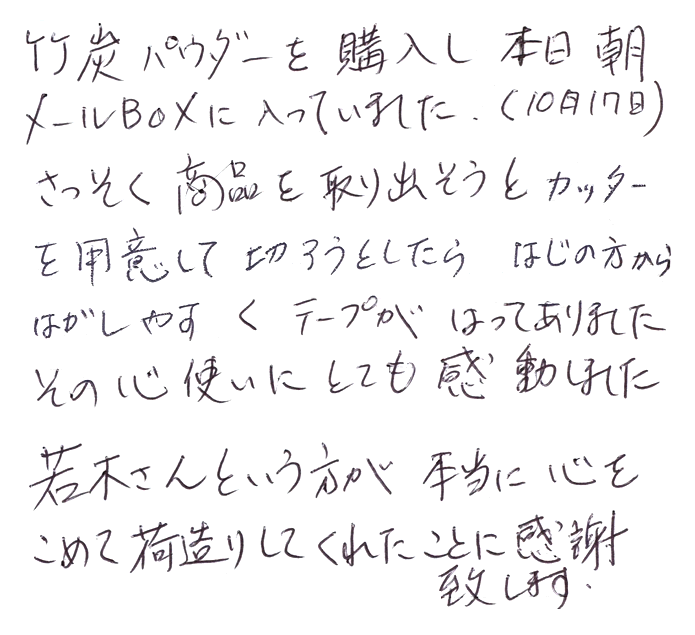 竹炭パウダーを購入し 本日朝
メールBOXに入っていました.(10月17日)
さっそく商品を取り出そうとカッター
を用意して切ろうとしたら はじの方から
はがしやすく テープが はってありました
その心使いにとても感動しました
若木さんという方が 本当に心を
こめて荷造りしてくれたことに感謝
致します.